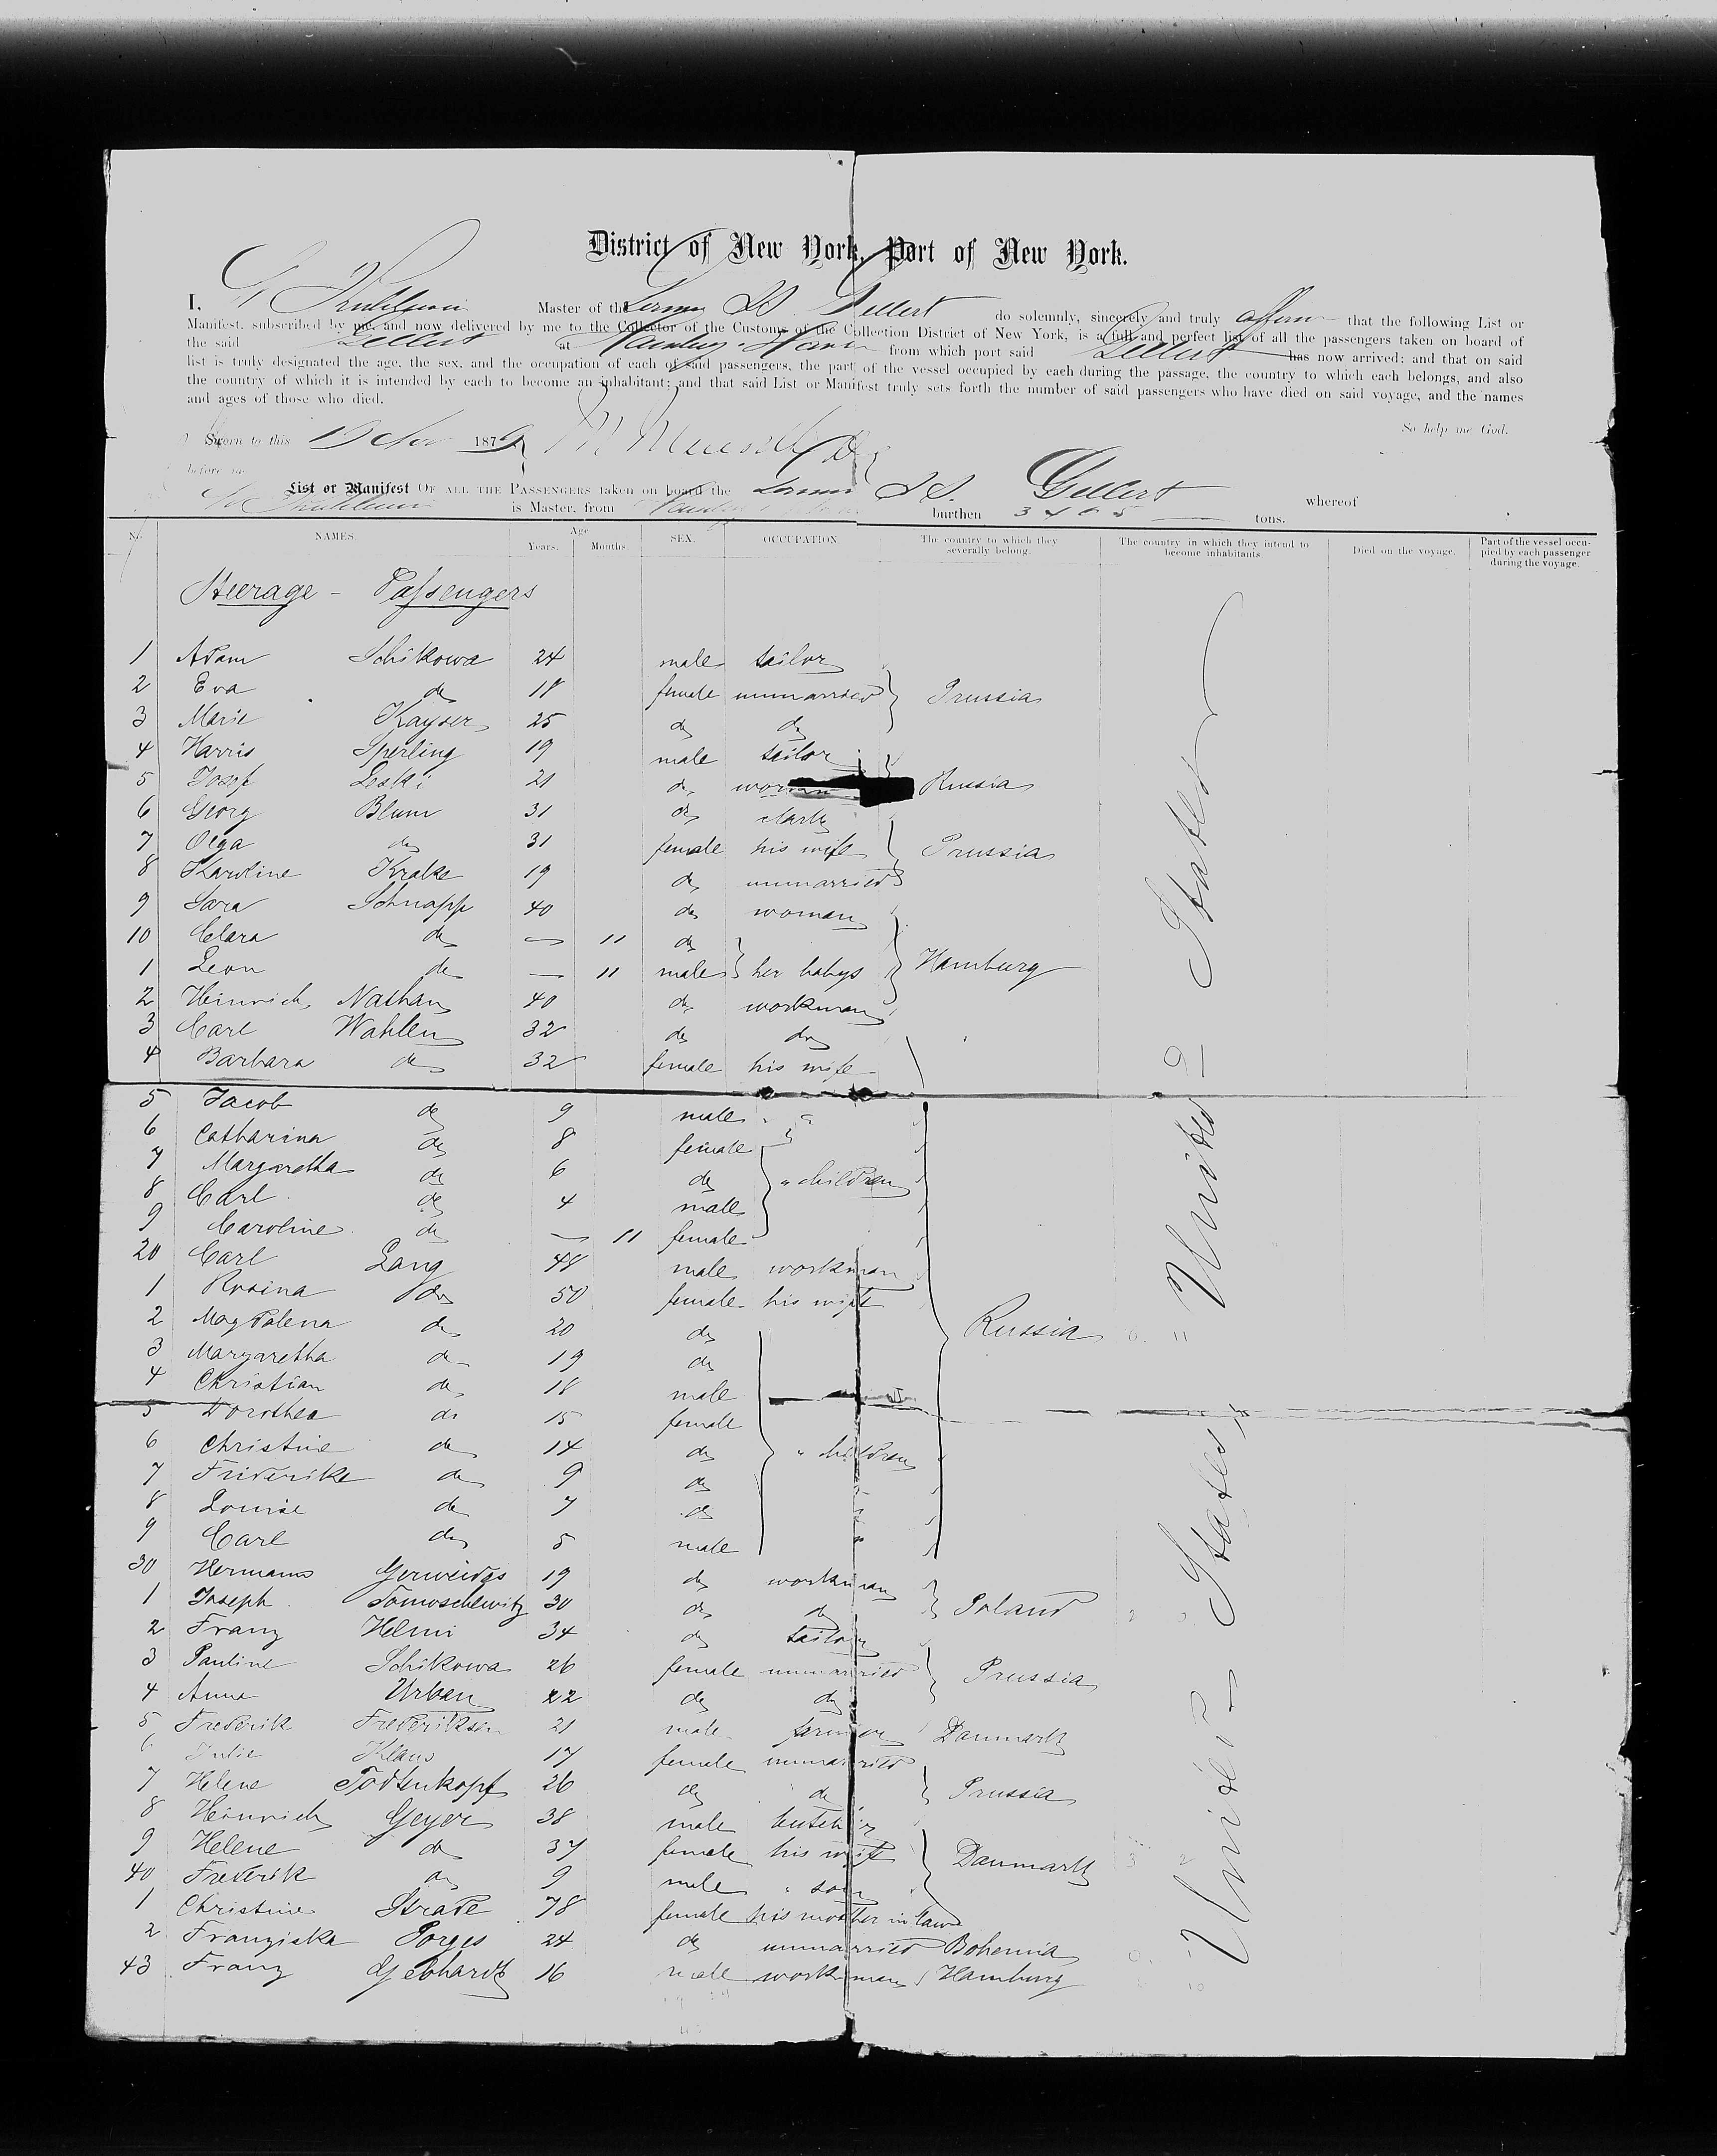 District of New York, Port of New York.
I, Master of the German SS. Gellert do solemnly, sincerely and truly affirm that the following List or
Manifest, subscribed by me, and now delivered by me to the Collector of the Customs of the Collection District of New York, is a full and perfect list of all the passengers taken on board of
the said Gellert at Hamburg from which port said Gellert has now arrived; and that on said
list is truly designated the age, the sex, and the occupation of each of said passengers, the part of the vessel occupied by each during the passage, the country to which each belongs, and also
the country of which it is intended by each to become an inhabitant; and that said List or Manifest truly sets forth the number of said passengers who have died on said voyage, and the names
and ages of those who died.
So help me God.
Sworn to this 1879
before me
List or Manifest OF ALL THE PASSENGERS taken on board the German SS. Gellert whereof
is Master, from burthen 3465 tons.
No. NAMES. Age Years. Months. SEX. OCCUPATION. The country to which they severally belong. The country in which they intend to become inhabitants. Died on the voyage. Part of the vessel occupied by each passenger during the voyage.
Steerage - Passengers
1 Adam Schikowa 24 male tailor
2 Eva do 18 female unmarried Prussia
3 Marie Kayser 25 do do
4 Harris Sperling 19 male tailor
5 Josef Leski 21 do Russia
6 Georg Blum 31 do clark
7 Olga do 31 female his wife Prussia
8 Karoline Krake 19 do unmarried
9 Sara Schnapp 40 do woman
10 Clara do — 11 do
1 Leon do — 11 male her babys Hamburg
2 Heinrich Nathan 40 do workman
3 Carl Wahlen 32 do do
4 Barbara do 32 female his wife
5 Jacob do 9 male
6 Catharina do 8 female
7 Margaretha do 6 do " children
8 Carl do 4 male
9 Caroline do — 11 female
20 Carl Lang 48 male workman
1 Rosina do 50 female his wife
2 Magdalena do 20 do Russia
3 Margaretha do 19 do
4 Christian do 18 male
5 Dorothea do 15 female
6 Christine do 14 do " children
7 Friderike do 9 do
8 Louise do 7 do
9 Carl do 5 male
30 Hermann 19 do workman
1 Joseph Tomoschewitz 30 do do Poland
2 Franz Helmi 34 do tailor
3 Pauline Schikowa 26 female unmarried Prussia
4 Anna Urban 22 do do
5 Frederik Frederiksen 21 male farmer Danmark
6 Julie Klaus 17 female unmarried
7 Helene Todtenkopf 26 do do Prussia
8 Heinrich Geyer 38 male butcher
9 Helene do 37 female his wife Danmark
40 Frederik do 9 male " son
1 Christine Strade 78 female his mother in law
2 Franziska Porges 24 do unmarried Bohemia
43 Franz Gebhardt 16 male workman Hamburg
United States
United States